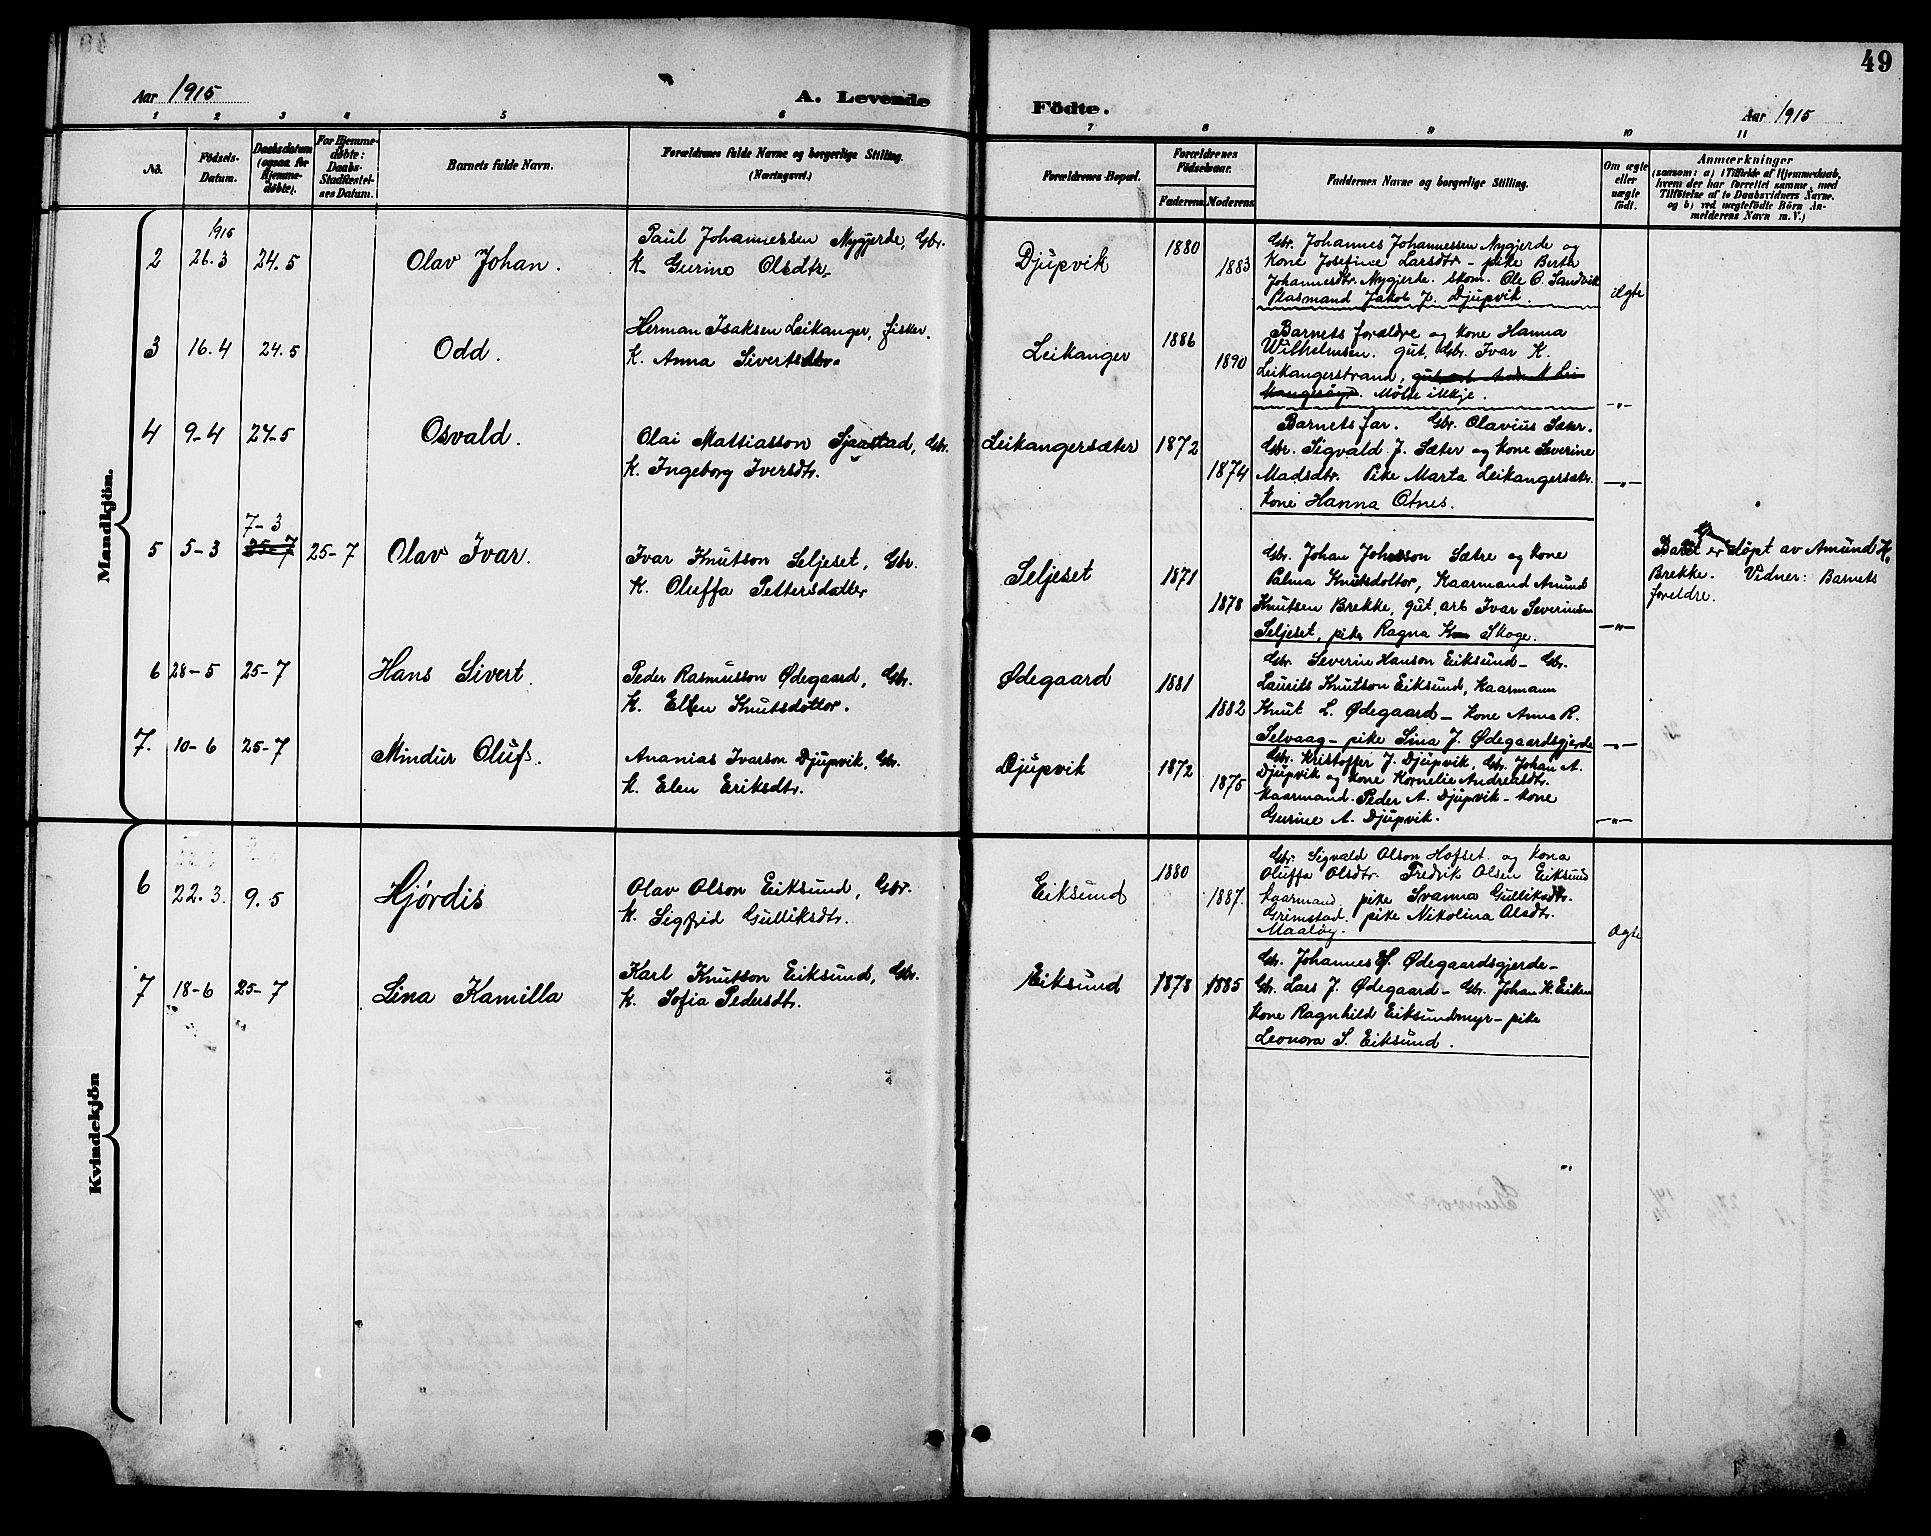 49
Aar 1915
A. Levende
Födte.
Aar 1915
1 2 3 4 5 6 7 8 9 10 11
No.
Födsels-
Datum.
Daabsdatum
(ogsaa for
Hjemme-
døbte).
For Hjemme-
døbte:
Daabs-
Stadfæstel-
ses Datum.
Barnets fulde Navn.
Forældrenes fulde Navne og borgerlige Stilling.
(Næringsvei.)
Forældrenes Bopæl.
Forældrenes
Födselsaar.
Faderens
Moderens
Faddernes Navne og borgerlige Stilling.
Om ægte
eller
uægte
født.
Anmærkninger
(saasom: a) i Tilfælde af Hjemmedaab,
hvem der har forrettet samme, med
Tilføielse af to Daabsvidners Navne.
og b) ved uægtefødte Börn An-
melderens Navn m. V.)
Mandkjön.
1915
2 26.3 24.5
Olav Johan.
Paul Johannessen Nygjerde, Gbr.
K. Gurine Olsdtr.
Djupvik
1880
1883
Gbr. Johannes Johannessen Nygjerde og
Kone Josefine Larsdtr - pike Berta
Johannesdtr. Nygjerde. Skom. Ole O. Sandvik
Plasmand Jakob J. Djupvik.
ægte
3 16.4 24.5
Odd.
Herman Isaksen Leikanger, fisker.
K. Anna Sivertsdtr.
Leikanger
1886
1890
Barnets forældre og kone Hanna
Wilhelmsen. gut, Gbr. Ivar K.
Leikangerstrand,
Møtte ikkje.
-"-
4 9-4 24-5
Osvald.
Olai Mattiasson Sjaastad, Gbr.
K. Ingeborg Iversdtr.
Leikangersæter
1872
1874
Barnets far. Gbr. Olavius Sæter.
Gbr. Sigvald J. Sæter og kone Severine
Madsdtr. Pike Marta Leikangersætr.
Kone Hanna Otnes.
-"-
5 5-3 7-3 25-7 25-7
Olav Ivar.
Ivar Knutson Seljeset, Gbr.
K. Oluffa Pettersdatter
Seljeset
1871
1878
Gbr. Johan Johnsson Sætre og kone
Palma Knutsdottor, Kaarmand Amund
Knutsen Brekke, gut, arb Ivar Severinsen
Seljeset, pike Ragna Skoge.
-"-
Barnet er døpt av Amund K.
Brekke. Vidner: Barnets
foreldre.
6 28-5 25-7
Hans Sivert.
Peder Rasmusson Ødegaard, Gbr.
K. Ellen Knutsdottor.
Ødegaard
1881
1882
Gbr. Severin Hanson Eiksund - Gbr.
Laurits Knutson Eiksund, Kaarmann
Knut L. Ødegaard - Kone Anna R.
Selvaag - pike Lina J. Ødegaardsgjerde
-"-
7. 10-6 25-7
Mindur Oluf.
Ananias Ivarson Djupvik, Gbr.
K. Elen Eriksdtr.
Djupvik
1872
1875
Gbr. Kristoffer J. Djupvik, Gbr. Johan A.
Djupvik og kone Kornelie Andreasdtr.
Kaarmand. Peder A. Djupvik - kone
Gurine A. Djupvik.
-"-
Kvindekjön
6 22.3. 9.5
Hjørdis
Olav Olson Eiksund, Gbr.
K. Sigfrid Gulliksdtr.
Eiksund
1880
1887.
Gbr. Sigvald Olson Hofset og kona
Oluffa Olsdtr. Fredrik Olsen Eiksund
kaarmand. pike Svanna Gulliksdtr.
Grimstad. pike Nikolina Olsdtr.
Maaløy.
Ægte
7 18-6 25-7
Lina Kamilla
Karl Knutson Eiksund, Gbr.
K. Sofia Pedersdtr.
Eiksund
1878 1885
Gbr. Johannes Ødegaardsgjerde -
Gbr. Lars J. Ødegaard - Gbr. Johan K. Eiksun
Kone Ragnhild Eiksundmyr - pike
Leonora S. Eiksund.